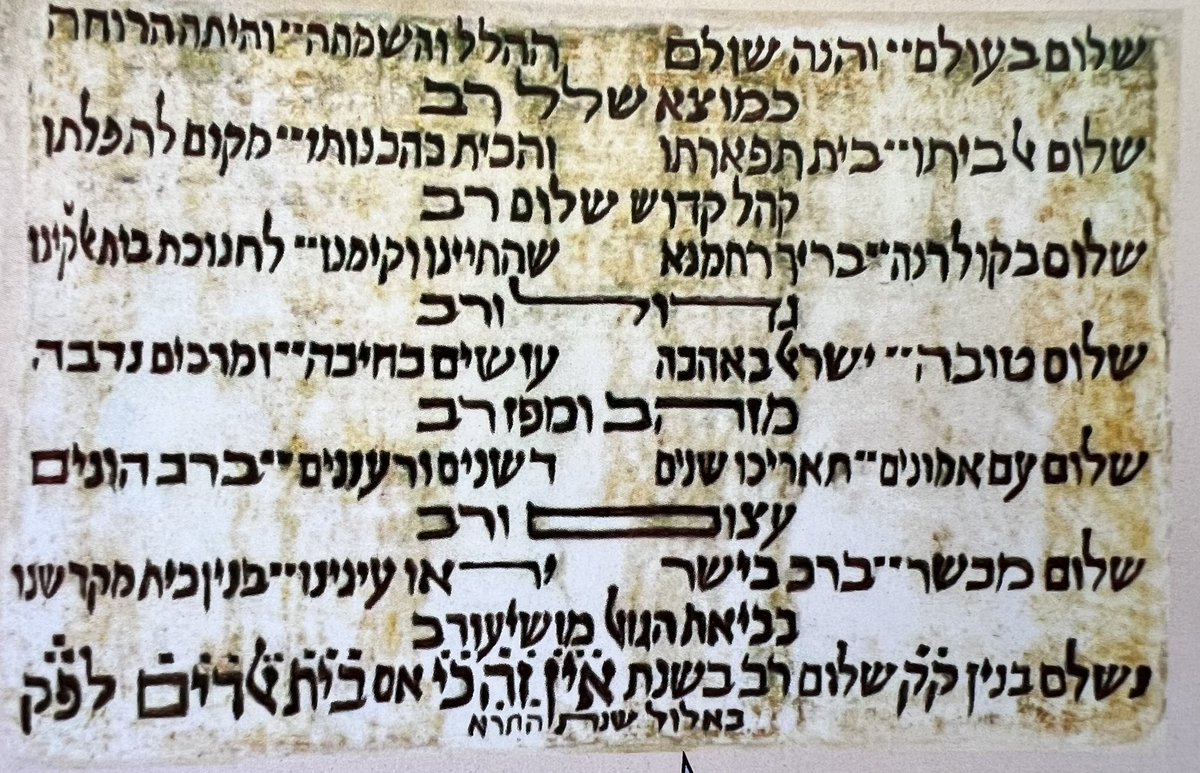 שלום בעולם·· והנה שולם ההלל והשמחה·· והיתה הרוחה
כמוצא שלל רב
שלום ﭏ ביתו·· בית תפארתו והבית בהבנותו·· מקום לתפלתו
קהל קדוש שלום רב
שלום בקול רנה·· בריך רחמנא שהחיינו וקימנו·· לחנוכת בית ﭏקינו
גדול ורב
שלום טובה·· ישרﭏ באהבה עושים בחיבה·· ומרבים נדבה
מזהב ומפז רב
שלום עם אמונים·· תאריכו שנים דשנים ורעננים·· ברב הונים
עצום ורב
שלום מבשר·· ברב בישר יראו עינינו·· בנין בית מקדשנו
בביאת הגוﭏ מושיע ורב
נשלם בנין ק̇ק̇ שלום רב בשנת אׄיׄןׄ זׄהׄ כׄיׄ אם בׄיׄתׄ ﭏׄדׄיׄםׄ לפׄקׄ
באלול שנת התׄרׄא